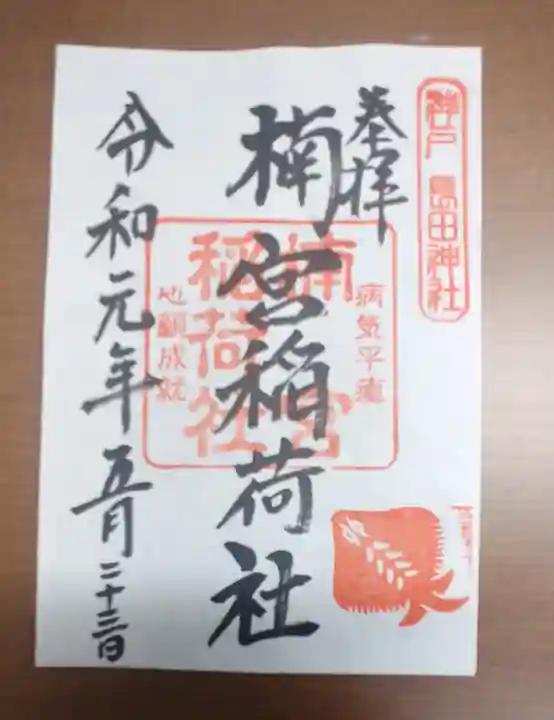 神戸 長田神社
奉拝
楠宮稲荷社
令和元年五月二十三日
楠宮
稲荷社
病気平癒
心願成就